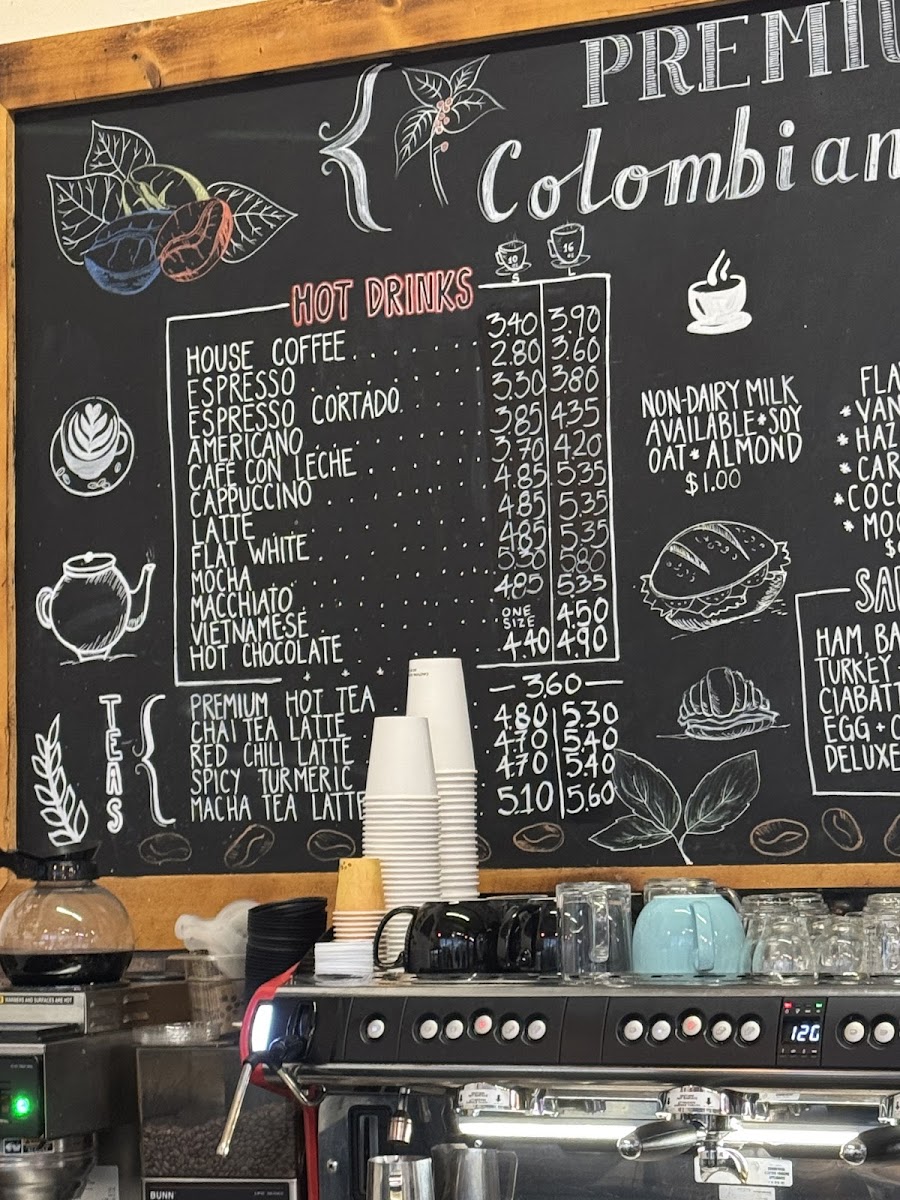 PREMIU
Colombian
10 oz 16 oz
S L
HOT DRINKS
HOUSE COFFEE 3.40 3.90
ESPRESSO 2.80 3.60
ESPRESSO CORTADO 3.30 3.80
AMERICANO 3.85 4.35
CAFE CON LECHE 3.70 4.20
CAPPUCCINO 4.85 5.35
LATTE 4.85 5.35
FLAT WHITE 4.85 5.35
MOCHA 5.30 5.80
MACCHIATO 4.85 5.35
VIETNAMESE ONE SIZE 4.50
HOT CHOCOLATE 4.40 4.90
TEAS
PREMIUM HOT TEA 3.60
CHAI TEA LATTE 4.80 5.30
RED CHILI LATTE 4.70 5.40
SPICY TURMERIC 4.70 5.40
MACHA TEA LATTE 5.10 5.60
NON-DAIRY MILK
AVAILABLE * SOY
OAT * ALMOND
$1.00
FLA
* VAN
* HAZ
* CAR
* COCO
* MOC
$
SA
HAM, BA
TURKEY
CIABATT
EGG + C
DELUXE
120
BUNN